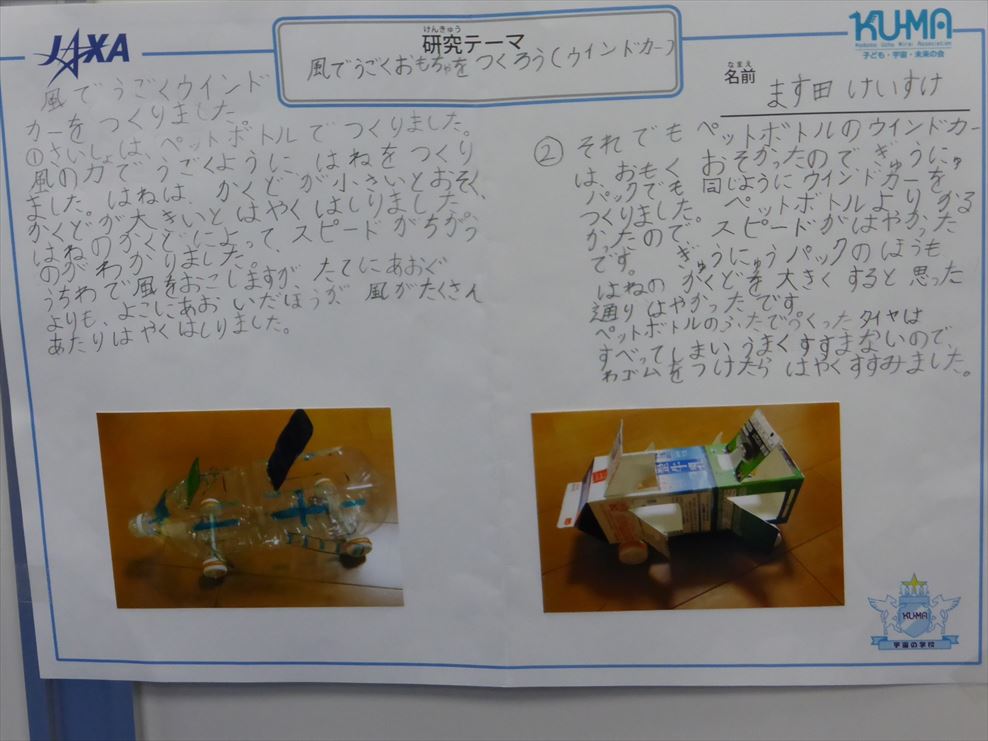 JAXA
けんきゅう
研究テーマ
風でうごくおもちゃをつくろう(ウインドカー)
KU-MA
Kodomo Uchu Mirai Association
子ども・宇宙・未来の会
なまえ
名前
ます田 けいすけ
風でうごくウインド
カーをつくりました。
①さいしょは、ペットボトルでつくりました。
風の力で、うごくように、はねをつくり
ました。はねは、かくどが小さいとおそく、
かくどが大きいとはやくはしりました。
はねのかくどによって、スピードがちがう
のがわかりました。
うちわで風をおこしますが、たてにあおぐ
よりも、よこにあおいだほうが風がたくさん
あたりはやくはしりました。
② それでもペットボトルのウインドカー
は、おもくおそかったのでぎゅうにゅ
パックでも同じようにウインドカーを
つくりました。ペットボトルよりかる
かったので、スピードがはやかった
です。ぎゅうにゅうパックのほうも、
はねのかくどを大きくすると思った
通りはやかったです。
ペットボトルのふたでつくったタイヤは
すべってしまいうまくすすまないので、
わゴムをつけたらはやくすすみました。
KU-MA
宇宙の学校